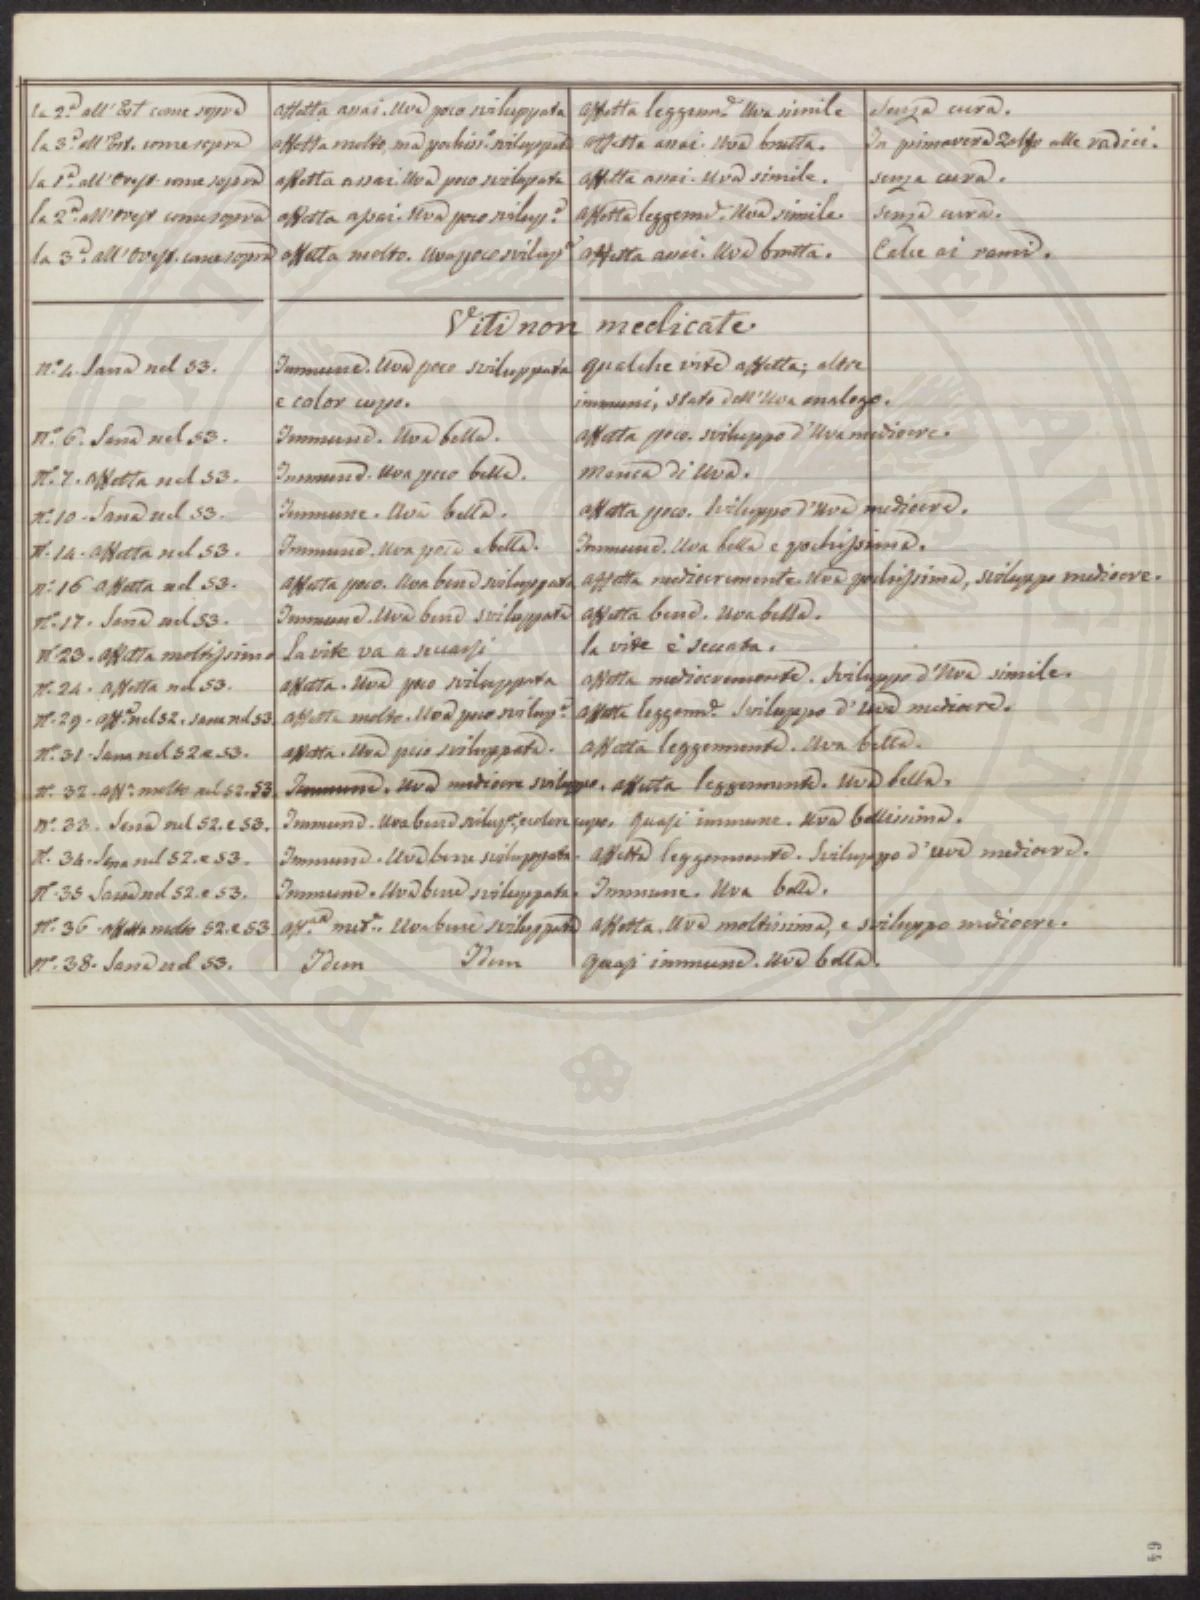 la 2.ª all'Est come sopra affetta assai. Uva poco sviluppata affetta leggerm.e Uva simile senza cura.
la 3.ª all'Est. come sopra affetta molto, ma pochiss.o sviluppata affetta assai. Uva brutta. In primavera Zolfo alle radici.
la 1.ª all'Ovest come sopra affetta assai. Uva poco svilupata affetta assai. Uva simile. senza cura.
la 2.ª all'Ovest come sopra affetta assai. Uva poco svilup.a affetta leggerme. Uva simile. senza cura.
la 3.ª all'Ovest. come sopra affetta molto. Uva poco svilup.a affetta assai. Uva brutta. Calce ai rami.
Viti non medicate.
n.o 4. Sana nel 53. Immune. Uva poco sviluppata qualche vite affetta; altre
e color cupo. immuni, stato dell'Uva analogo.
N.o 6. Sana nel 53. Immune. Uva bella. affetta poco. sviluppo d'Uva mediocre.
N.o 7. affetta nel 53. Immune. Uva poco bella. manca di Uva.
n.o 10. Sana nel 53. Immune. Uva bella. affetta poco. Sviluppo d'Uva mediocre.
n.o 14. affetta nel 53. Immune. Uva poca e bella. Immune. Uva bella e pochissima.
n.o 16 affetta nel 53. affetta poco. Uva bene sviluppata affetta mediocremente. Uva pochissima, sviluppo mediocre.
n.o 17. Sana nel 53. Immune. Uva bene sviluppata affetta bene. Uva bella.
n.o 23. affetta moltissimo La vite va a seccarsi la vite è seccata.
n.o 24. affetta nel 53. affetta. Uva poco sviluppata affetta mediocremente. Sviluppo d'Uva simile.
n.o 29. aff.a nel 52. sana nel 53 affetta molto. Uva poco svilup.a affetta leggerm.e Sviluppo d'Uva mediocre.
n.o 31. Sana nel 52 e 53. affetta. Uva poco sviluppata. affetta leggermente. Uva bella.
n.o 32. aff.a molto nel 52. 53. Immune. Uva mediocre sviluppo. affetta leggermente. Uva bella.
n.o 33. Sana nel 52. e 53. Immune. Uva bene svilup.a, e colore cupo. quasi immune. Uva bellissima.
n.o 34. Sana nel 52. e 53. Immune. Uva bene sviluppata. affetta leggermente. Sviluppo d'uva mediocre.
n.o 35 Sana nel 52. e 53. Immune. Uva bene sviluppata. Immune. Uva bella.
n.o 36. affetta molto 52. e 53 Uva bene sviluppata affetta. Uva moltissima, e sviluppo mediocre.
n.o 38. Sana nel 53. Idem Idem quasi immune. Uva bella.
49